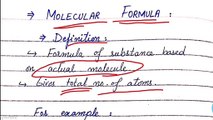 ⇒ MOLECULAR FORMULA :
⇒ Definition :
↳ Formula of substance based
on actual molecule
↳ Gives total no. of atoms.
For example :